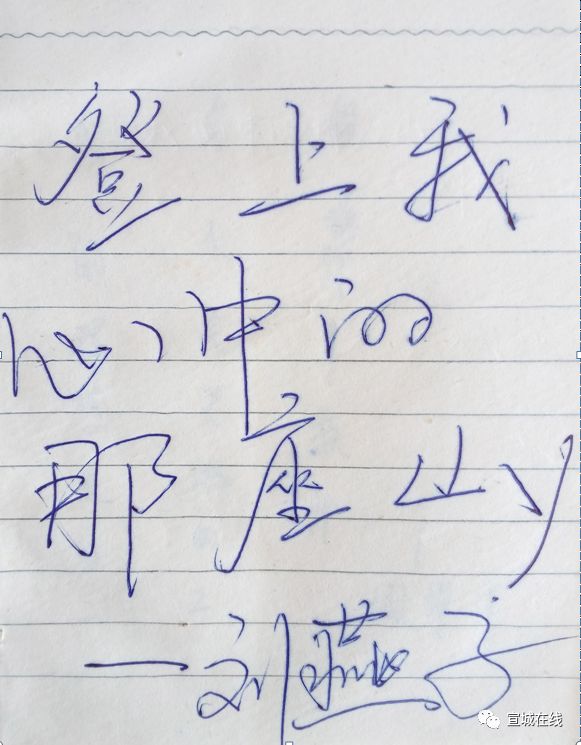 登上我
心中的
那座山
—刘燕子
宣城在线